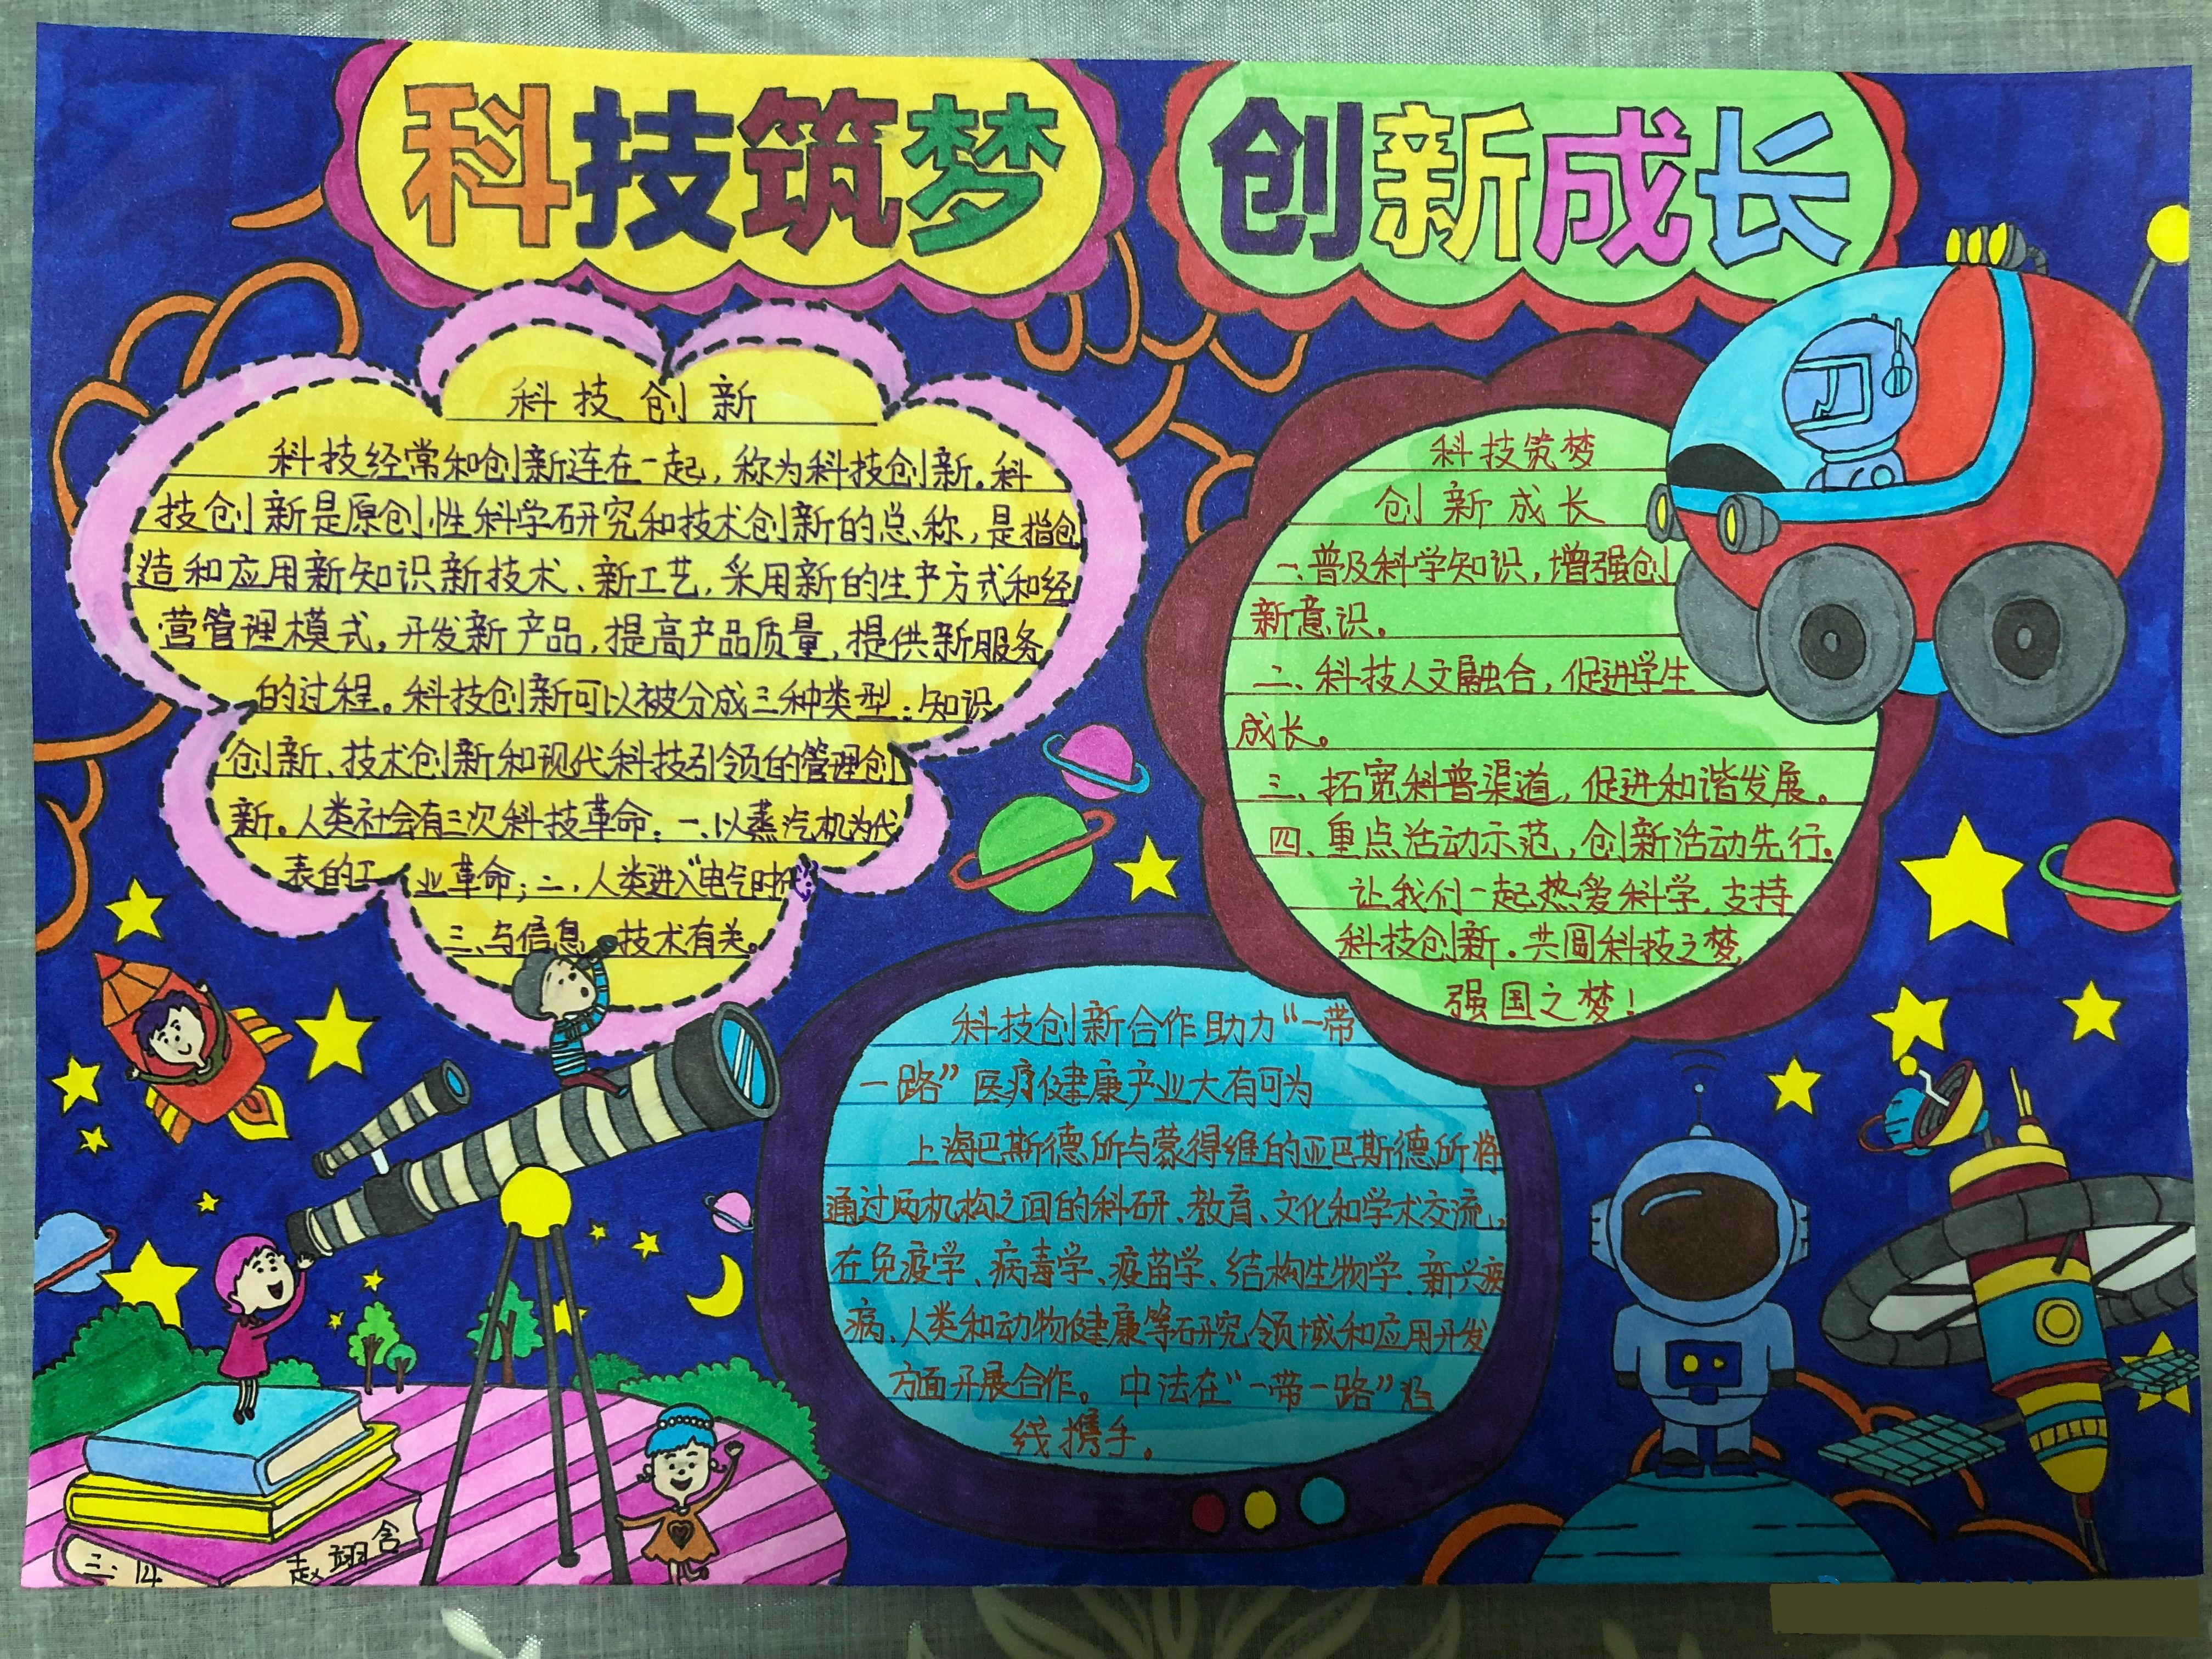 科技筑梦
创新成长
科技创新
科技经常和创新连在一起，称为科技创新。科
技创新是原创性科学研究和技术创新的总称，是指创
造和应用新知识新技术、新工艺，采用新的生产方式和经
营管理模式，开发新产品，提高产品质量，提供新服务
的过程。科技创新可以被分成三种类型：知识
创新、技术创新和现代科技引领的管理创
新。人类社会有三次科技革命：一、以蒸汽机为代
表的工业革命；二、人类进入“电气时代”
三、与信息技术有关。
科技筑梦
创新成长
一、普及科学知识，增强创
新意识。
二、科技人文融合，促进学生
成长。
三、拓宽科普渠道，促进和谐发展。
四、重点活动示范，创新活动先行。
让我们一起热爱科学，支持
科技创新。共圆科技之梦，
强国之梦！
科技创新合作助力“一带
一路”医疗健康产业大有可为
上海巴斯德所与蒙得维的亚巴斯德所将
通过两机构之间的科研、教育、文化和学术交流，
在免疫学、病毒学、疫苗学、结构生物学、新兴疾
病、人类和动物健康等研究领域和应用开发
方面开展合作。中法在“一带一路”沿
线携手。
三.14 赵翊含